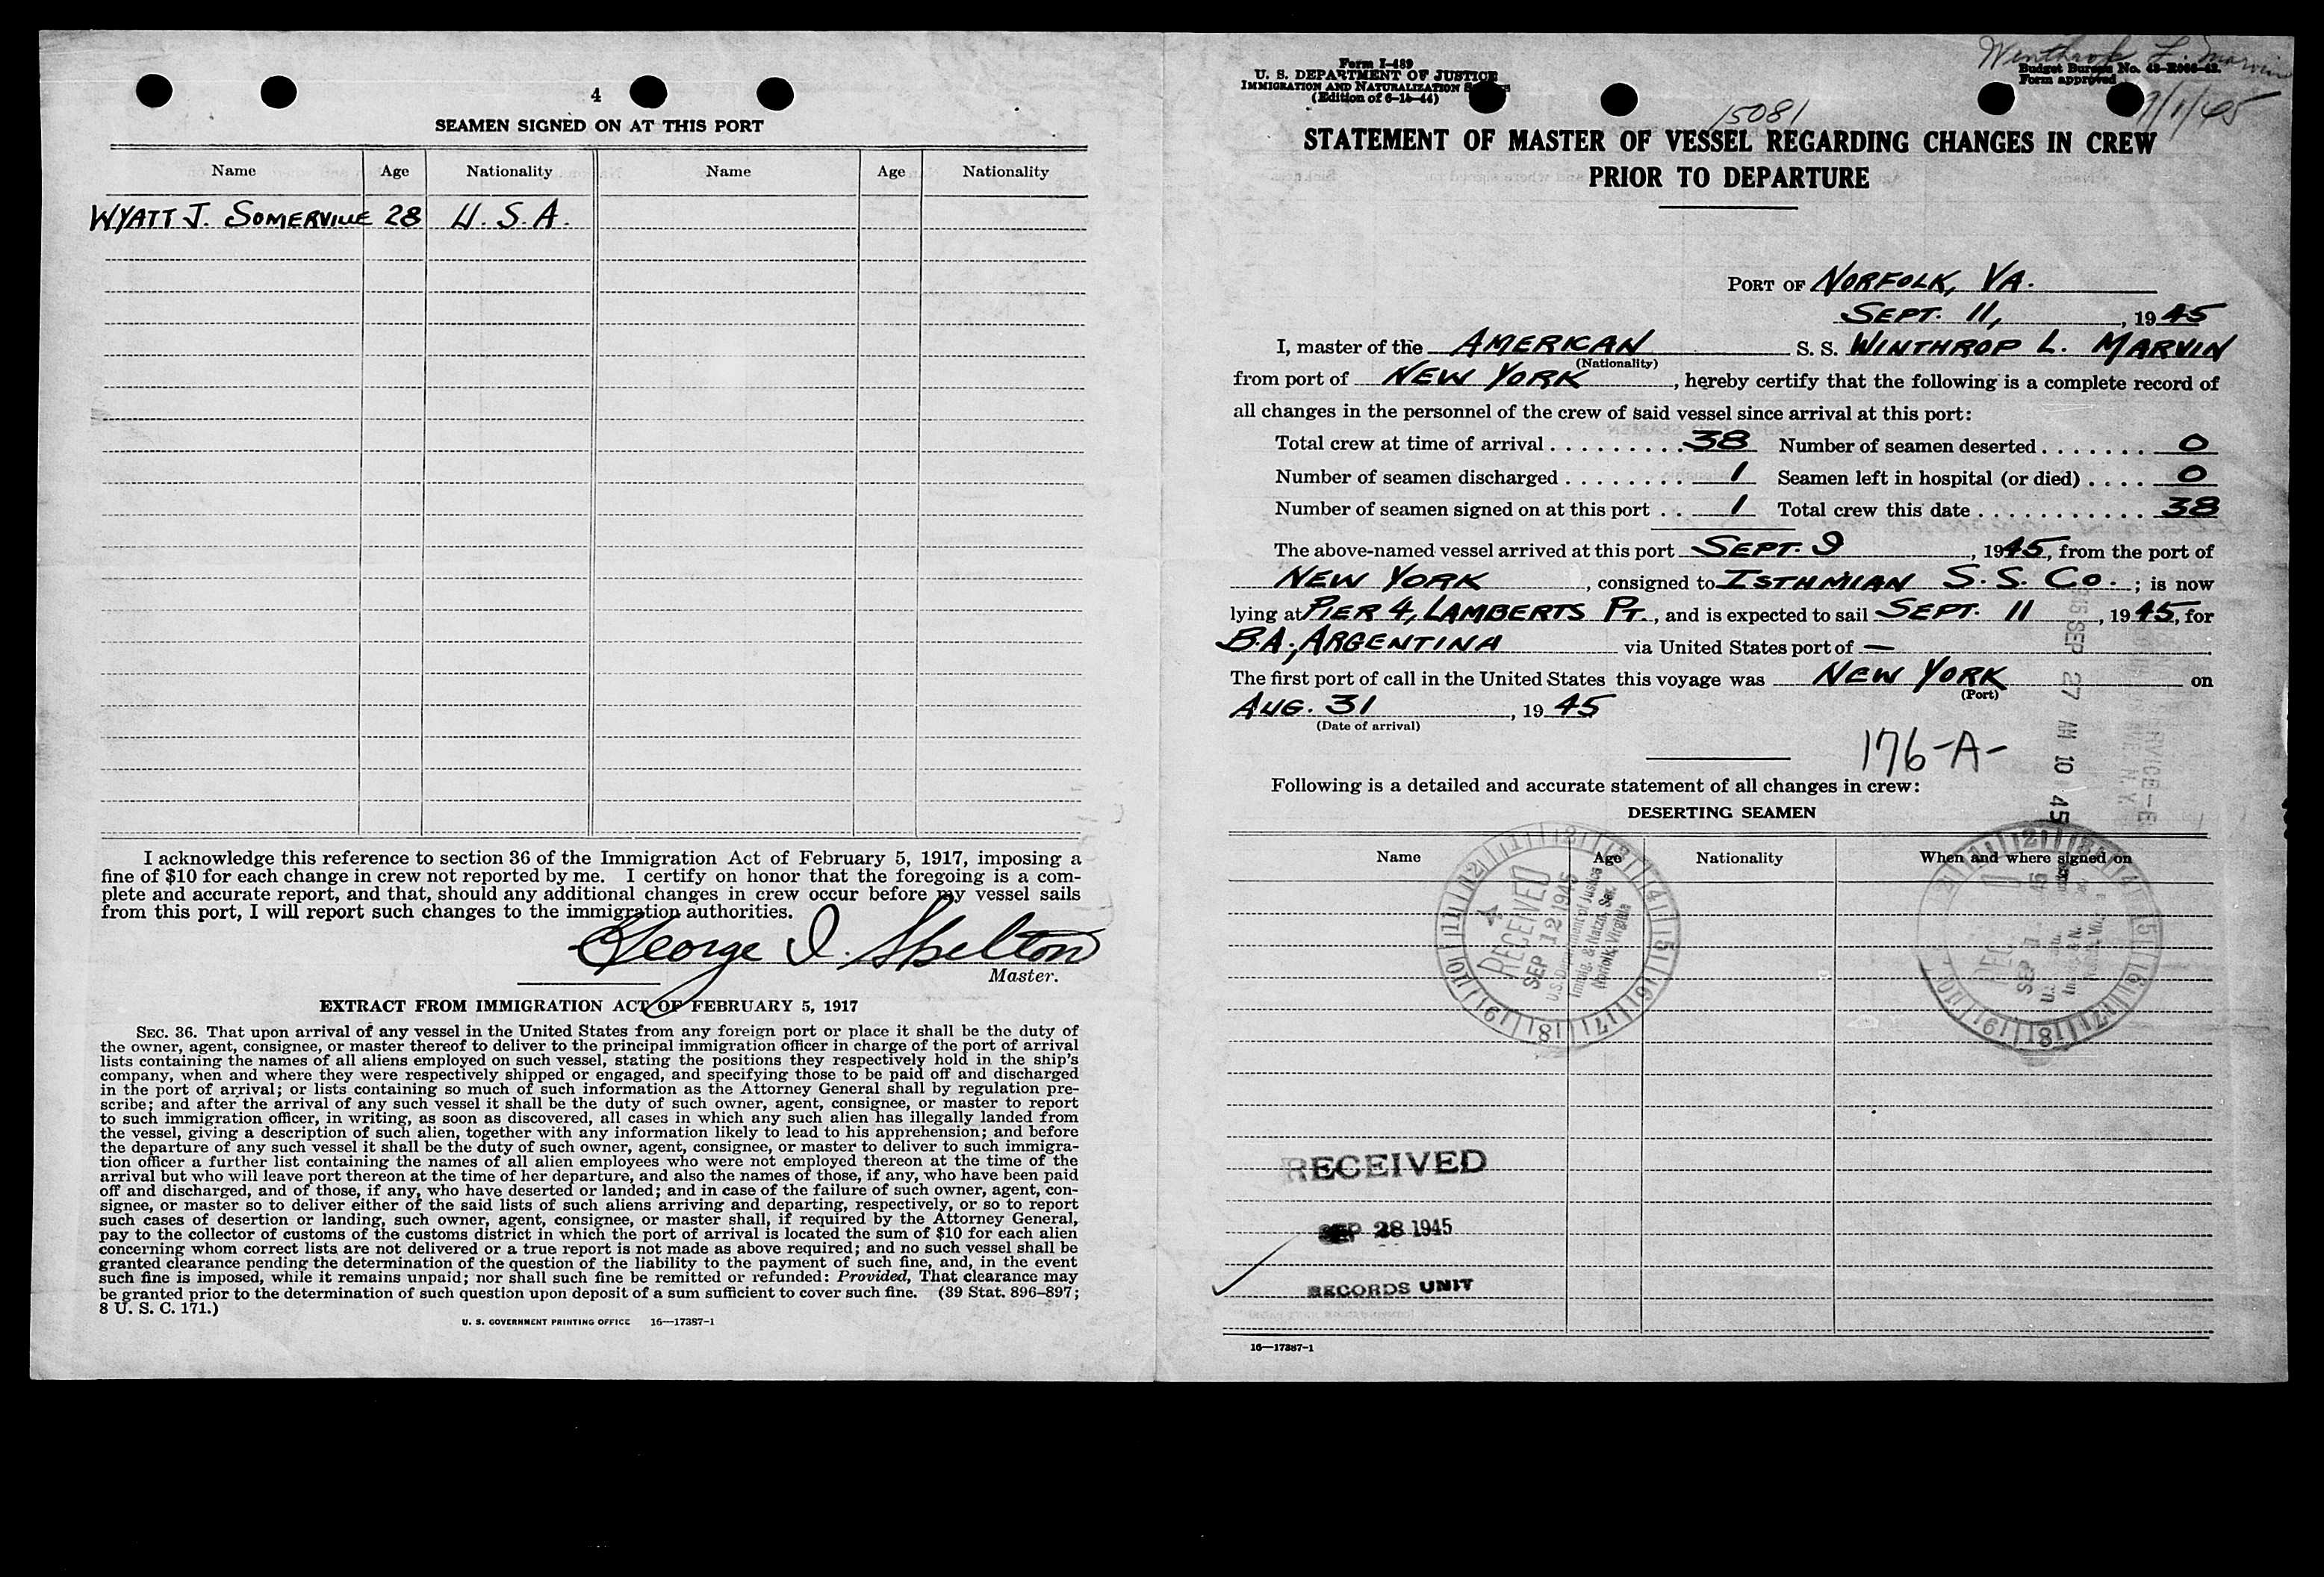 4
SEAMEN SIGNED ON AT THIS PORT
Name Age Nationality Name Age Nationality
WYATT J. SOMERVILLE 28 U.S.A.
I acknowledge this reference to section 36 of the Immigration Act of February 5, 1917, imposing a
fine of $10 for each change in crew not reported by me. I certify on honor that the foregoing is a com-
plete and accurate report, and that, should any additional changes in crew occur before my vessel sails
from this port, I will report such changes to the immigration authorities.
George I. Shelton
Master.
EXTRACT FROM IMMIGRATION ACT OF FEBRUARY 5, 1917
SEC. 36. That upon arrival of any vessel in the United States from any foreign port or place it shall be the duty of
the owner, agent, consignee, or master thereof to deliver to the principal immigration officer in charge of the port of arrival
lists containing the names of all aliens employed on such vessel, stating the positions they respectively hold in the ship's
company, when and where they were respectively shipped or engaged, and specifying those to be paid off and discharged
in the port of arrival; or lists containing so much of such information as the Attorney General shall by regulation pre-
scribe; and after the arrival of any such vessel it shall be the duty of such owner, agent, consignee, or master to report
to such immigration officer, in writing, as soon as discovered, all cases in which any such alien has illegally landed from
the vessel, giving a description of such alien, together with any information likely to lead to his apprehension; and before
the departure of any such vessel it shall be the duty of such owner, agent, consignee, or master to deliver to such immigra-
tion officer a further list containing the names of all alien employees who were not employed thereon at the time of the
arrival but who will leave port thereon at the time of her departure, and also the names of those, if any, who have been paid
off and discharged, and of those, if any, who have deserted or landed; and in case of the failure of such owner, agent, con-
signee, or master so to deliver either of the said lists of such aliens arriving and departing, respectively, or so to report
such cases of desertion or landing, such owner, agent, consignee, or master shall, if required by the Attorney General,
pay to the collector of customs of the customs district in which the port of arrival is located the sum of $10 for each alien
concerning whom correct lists are not delivered or a true report is not made as above required; and no such vessel shall be
granted clearance pending the determination of the question of the liability to the payment of such fine, and, in the event
such fine is imposed, while it remains unpaid; nor shall such fine be remitted or refunded: Provided, That clearance may
be granted prior to the determination of such question upon deposit of a sum sufficient to cover such fine. (39 Stat. 896–897;
8 U. S. C. 171.)
U. S. GOVERNMENT PRINTING OFFICE 16—17387-1
Form I-489
U. S. DEPARTMENT OF JUSTICE
IMMIGRATION AND NATURALIZATION
(Edition of 6-15-44)
Winthrop L. Marvin
Budget Bureau No.
Form approved
9/1/45
15081
STATEMENT OF MASTER OF VESSEL REGARDING CHANGES IN CREW
PRIOR TO DEPARTURE
PORT OF NORFOLK, VA.
SEPT. 11, 1945
I, master of the AMERICAN S. S. WINTHROP L. MARVIN
(Nationality)
from port of NEW YORK, hereby certify that the following is a complete record of
all changes in the personnel of the crew of said vessel since arrival at this port:
Total crew at time of arrival . . . . . . . . . 38 Number of seamen deserted . . . . . . . 0
Number of seamen discharged . . . . . . . . 1 Seamen left in hospital (or died) . . . . 0
Number of seamen signed on at this port . . 1 Total crew this date . . . . . . . . . . . 38
The above-named vessel arrived at this port SEPT. 9, 1945, from the port of
NEW YORK, consigned to ISTHMIAN S. S. CO.; is now
lying at PIER 4, LAMBERTS PT., and is expected to sail SEPT. 11, 1945, for
B.A., ARGENTINA via United States port of —
The first port of call in the United States this voyage was NEW YORK on
(Port)
AUG. 31, 1945
(Date of arrival)
SEP 27 AM 10 45
176-A-
Following is a detailed and accurate statement of all changes in crew:
DESERTING SEAMEN
Name Age Nationality When and where signed on
RECEIVED
SEP 12 1945
U.S. Department of Justice
Immig. & Natzn. Ser.
Norfolk, Virginia
RECEIVED
SEP 28 1945
RECORDS UNIT
16—17387-1